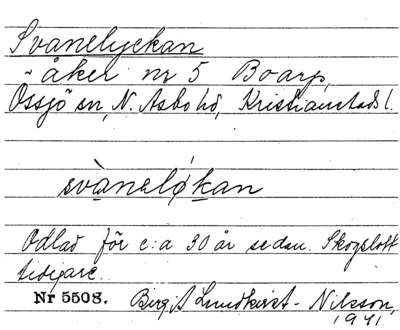 Svanelyckan
~ åker nr 5 Boarp,
Össjö sn, N. Åsbo hd, Kristianstads l.
svàneløkan
Odlad för c:a 30 år sedan. Skogslott
tidigare.
Nr 5508. Birgit Lundkvist-Nilsson,
1941.